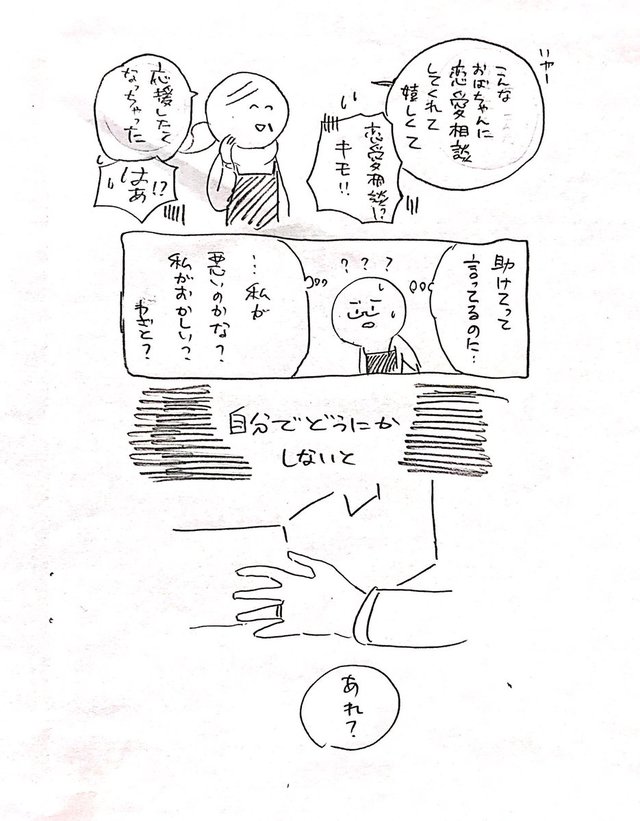 いやー
こんな
おばちゃんに
恋愛相談
してくれて
嬉しくて
恋愛相談!?
キモ!!
応援したく
なっちゃった
はぁ!?
助けてって
言ってるのに…
???
…私が
悪いのかな?
私がおかしい?
わざと?
自分でどうにか
しないと
あれ?